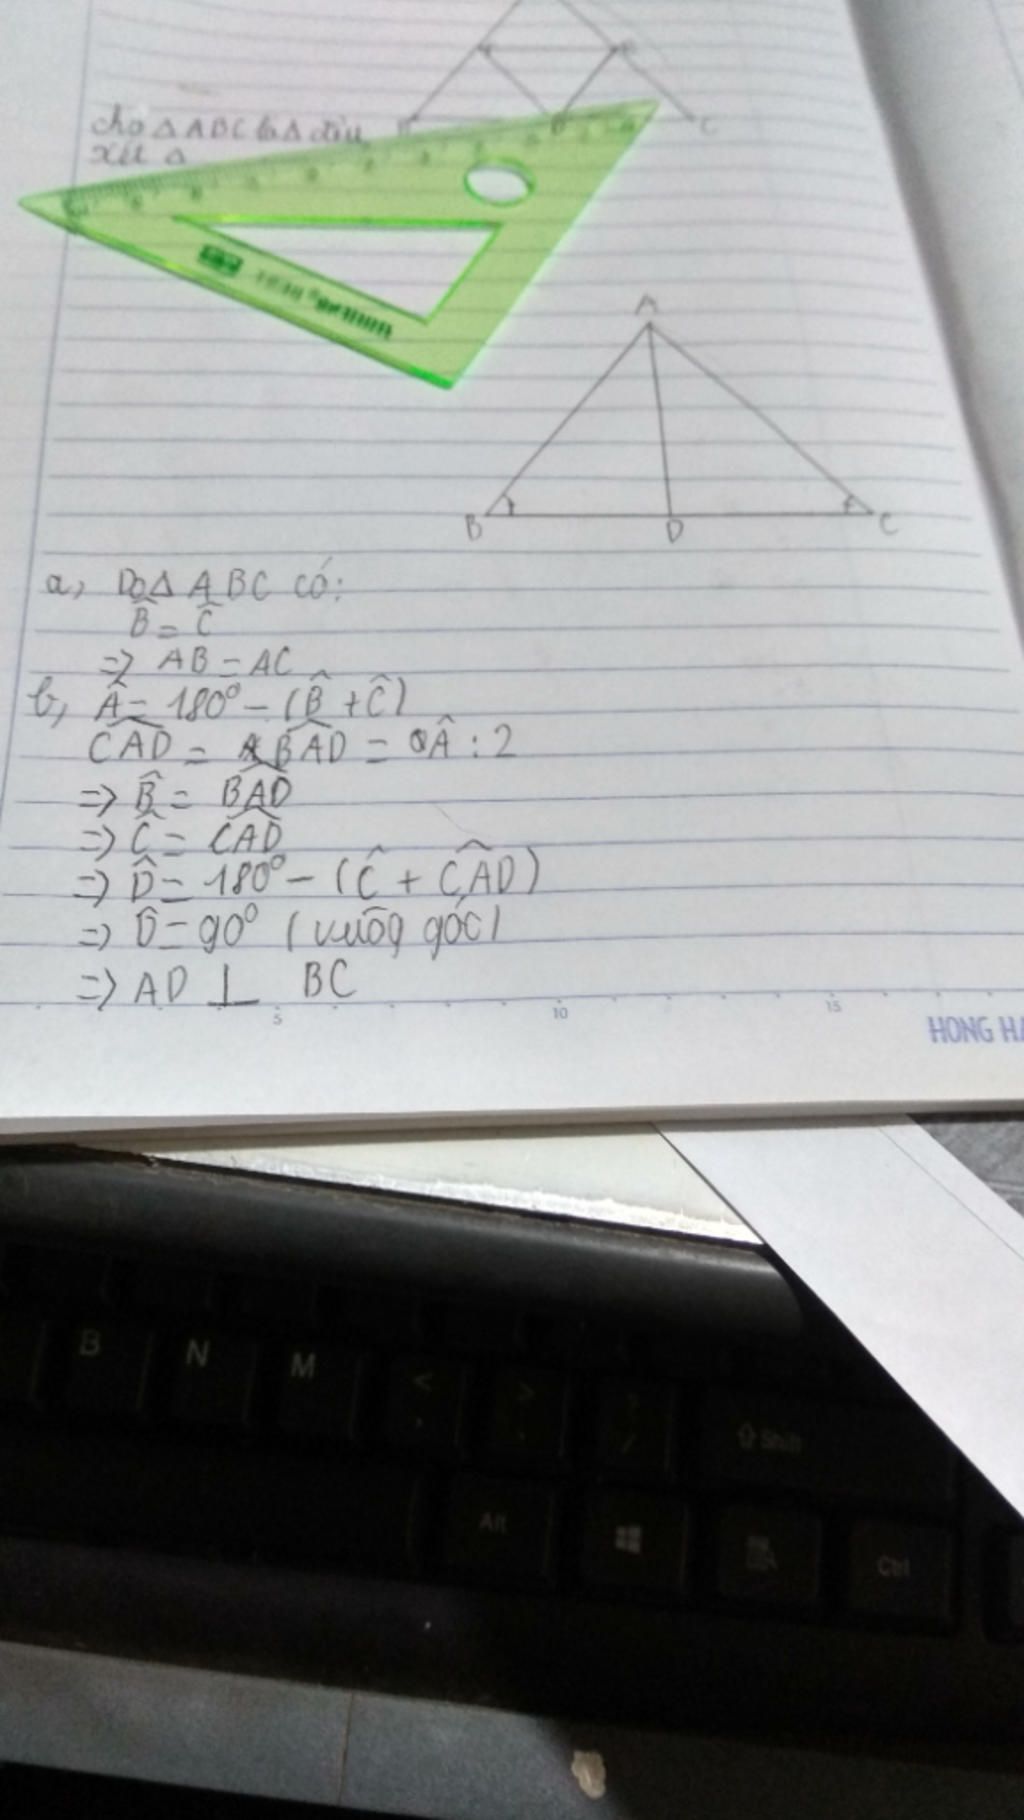 C
cho Δ ABC là Δ đều
xét Δ
A
B
D
C
a, Do Δ ABC có:
B̂ = Ĉ
=> AB = AC
b, Â = 180° - (B̂ + Ĉ)
CAD = BAD = Â : 2
=> B̂ = BAD
=> Ĉ = CAD
=> D̂ = 180° - (Ĉ + CAD)
=> D̂ = 90° (vuôg góc)
=> AD ⊥ BC
5 10 15
HONG HA
B N M < > ?
, . /
Shift
Alt Ctrl